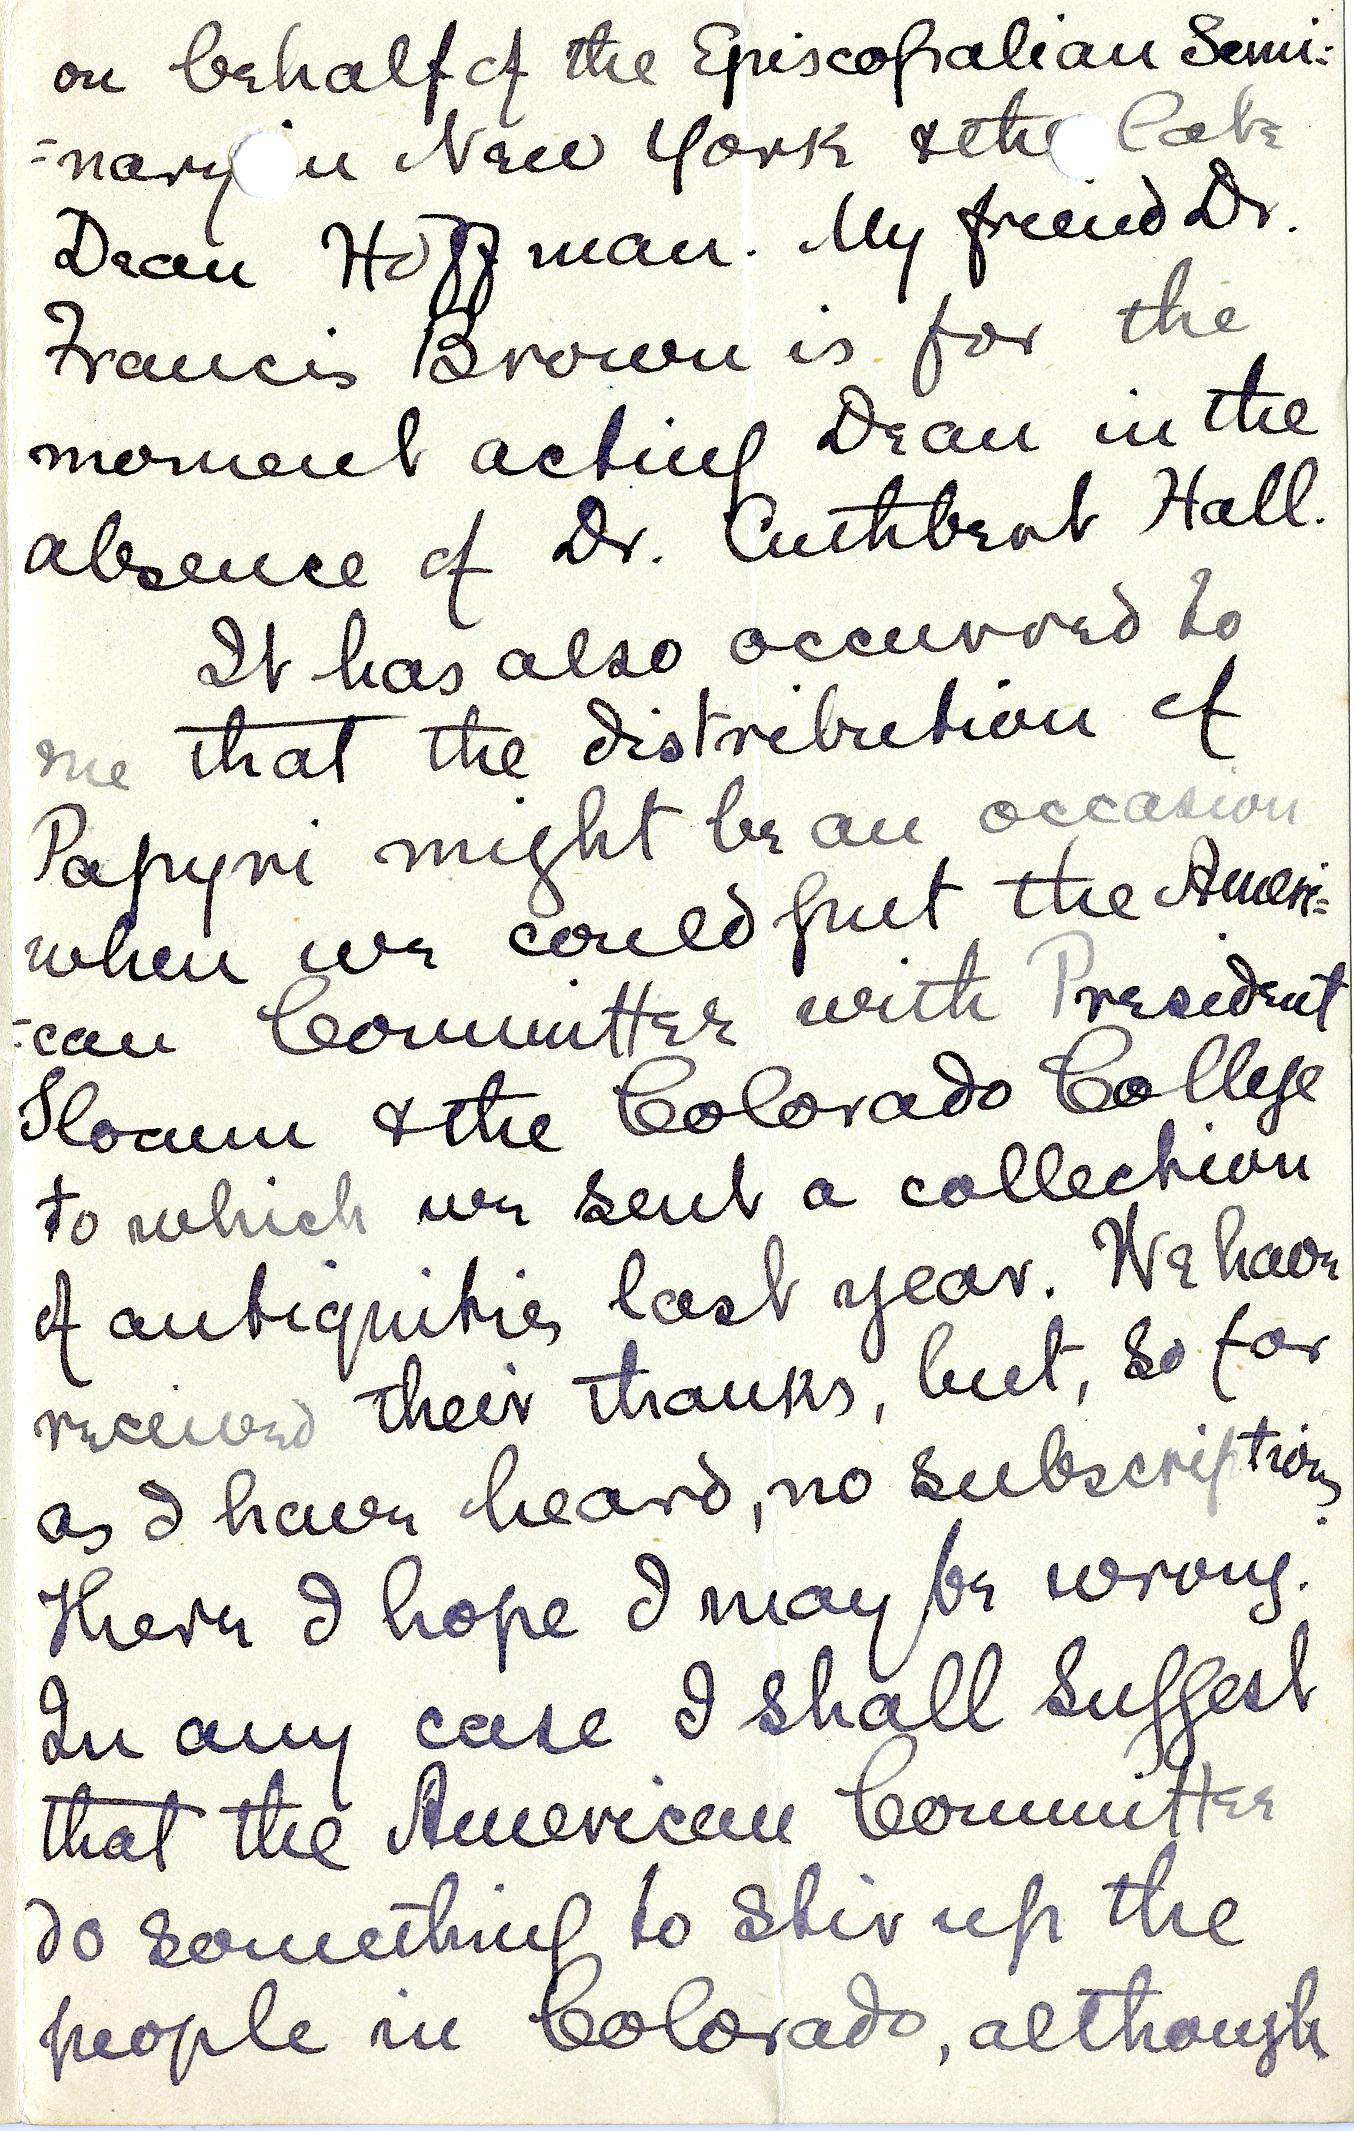 on behalf of the Episcopalian Semi:
=nary in New York & the late
Dean Hoffman. My friend Dr.
Francis Brown is for the
moment acting Dean in the
absence of Dr. Cuthbert Hall.
It has also occurred to
me that the distribution of
Papyri might be an occasion
when we could put the Ameri=
=can Committee with President
Slocum & the Colorado College
to which we sent a collection
of antiquities last year. We have
received their thanks, but, so far
as I have heard, no subscriptions.
Here I hope I may be wrong.
In any case I shall suggest
that the American Committee
do something to stir up the
people in Colorado, although